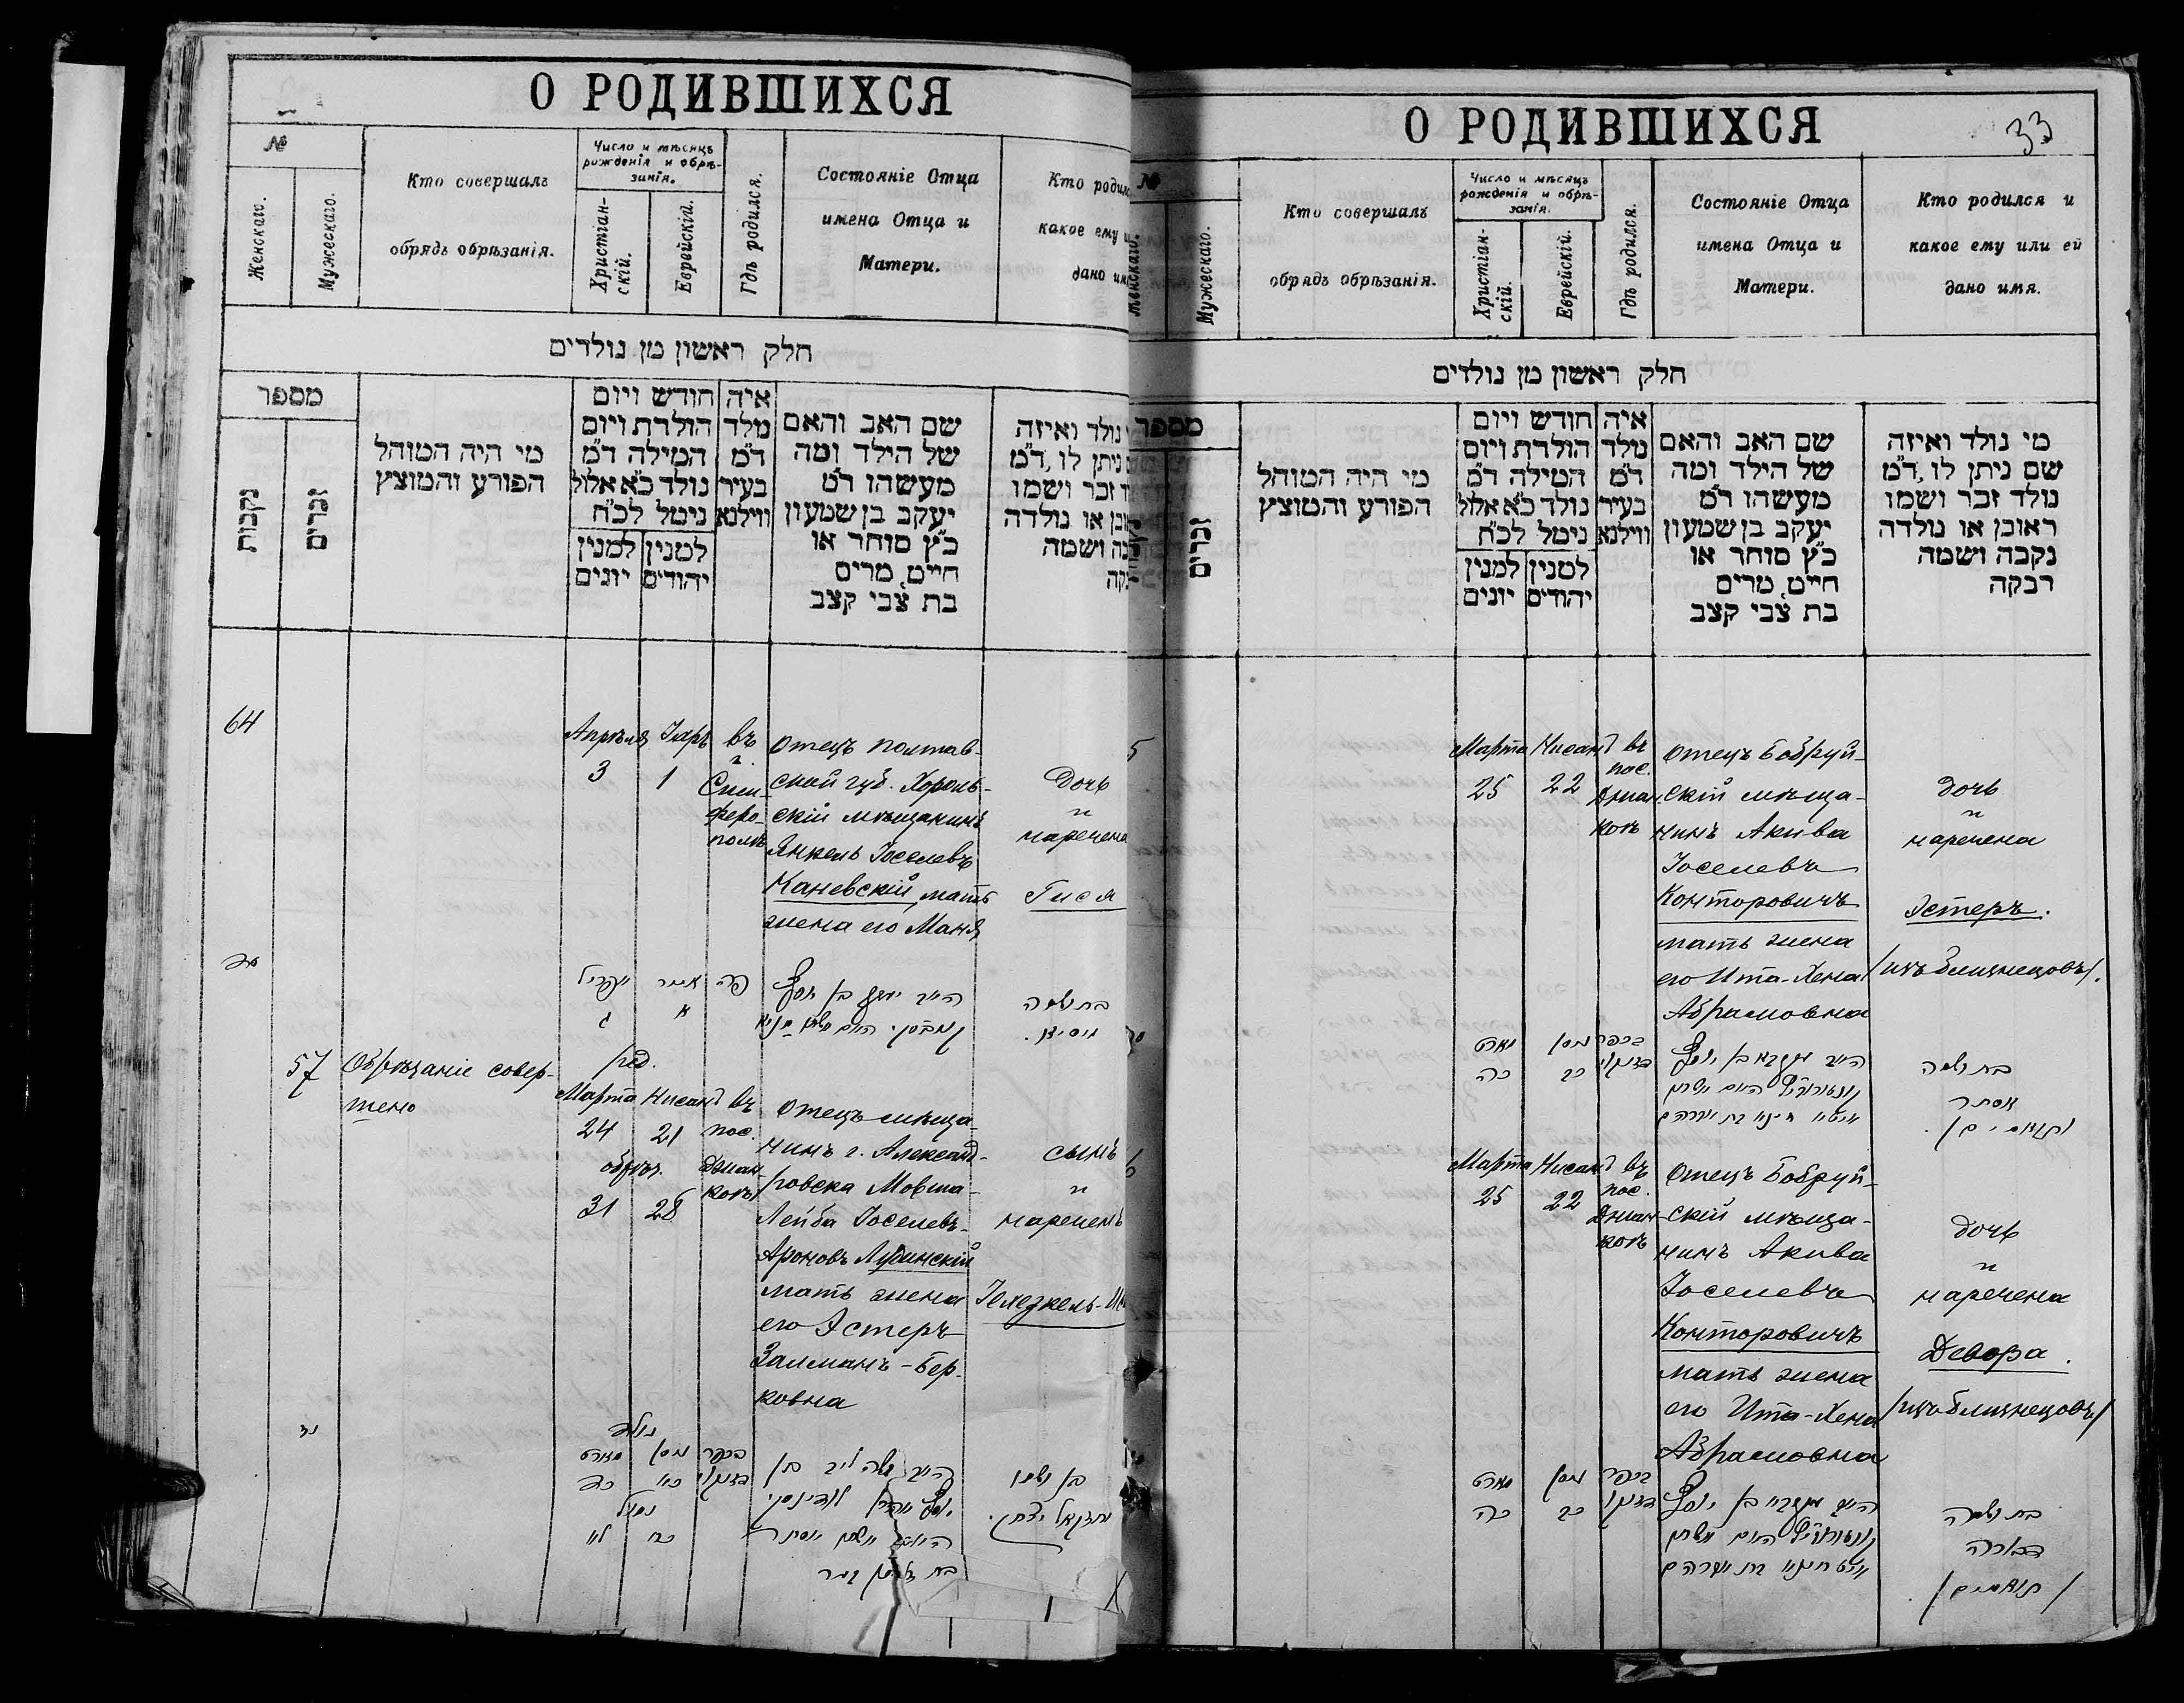 О РОДИВШИХСЯ
№
Женскаго.
Мужескаго.
Кто совершалъ
обрядъ обрѣзанія.
Число и мѣсяцъ
рожденія и обрѣ-
занія.
Христіан-
скій.
Еврейскій.
Гдѣ родился.
Состояніе Отца
имена Отца и
Матери.
Кто родилс
какое ему и
дано им
חלק ראשון מן נולדים
מספר
נקבות
זכרים
מי היה המוהל
הפורע והמוצץ
חודש ויום
הולדת ויום
המילה ד״מ
נולד כ״א אלול
נימל לכ״ח
למנין יהודים
למנין יונים
איה
נולד
ד״מ
בעיר
ווילנא
שם האב והאם
של הילד ומה
מעשהו ד״מ
יעקב בן שמעון
כ״ץ סוחר או
חייט, מרים
בת צבי קצב
נולד ואיזה
ניתן לו, ד״מ
זכר ושמו
או נולדה
ושמה
64
Апрѣля
3
Іяръ
1
въ
г.
Сим-
феро-
полѣ
Отецъ Полтав-
ской губ. Хороль-
скій мѣщанинъ
Янкель Іоселевъ
Каневскій, мать
жена его Маня
Дочь
и
наречена
Гися
סד
אפריל
ג
אייר
א
פה
בת ושמה
57
Обрѣзаніе совер-
шено
род.
Марта
24
обрѣз.
31
Нисанъ
21
28
въ
пос.
Джан-
коѣ
Отецъ мѣща-
нинъ г. Александ-
ровска Мовша-
Лейба Іоселевъ-
Ароновъ Лудинскій
мать жена
его Эстеръ
Залманъ-Бер-
ковна
сынъ
и
нареченъ
Іехезкель-
נז
נולד
מארט
כד
ניסן
כא
בכפר
נמול
לא
כח
בן ושמו
יחזקאל יצחק.
О РОДИВШИХСЯ
33
№
Женскаго.
Мужескаго.
Кто совершалъ
обрядъ обрѣзанія.
Число и мѣсяцъ
рожденія и обрѣ-
занія.
Христіан-
скій.
Еврейскій.
Гдѣ родился.
Состояніе Отца
имена Отца и
Матери.
Кто родился и
какое ему или ей
дано имя.
חלק ראשון מן נולדים
מספר
זכרים
מי היה המוהל
הפורע והמוצץ
חודש ויום
הולדת ויום
המילה ד״מ
נולד כ״א אלול
נימל לכ״ח
למנין יהודים
למנין יונים
איה
נולד
ד״מ
בעיר
ווילנא
שם האב והאם
של הילד ומה
מעשהו ד״מ
יעקב בן שמעון
כ״ץ סוחר או
חייט, מרים
בת צבי קצב
מי נולד ואיזה
שם ניתן לו, ד״מ
נולד זכר ושמו
ראובן או נולדה
נקבה ושמה
רבקה
5
Марта
25
Нисанъ
22
въ
пос.
Джан-
коѣ
Отецъ Бобруй-
скій мѣща-
нинъ Акива
Іоселевъ
Конторовичъ
мать жена
его Ита-Хена
Абрамовна
дочь
и
наречена
Эстеръ.
/изъ близнецовъ/.
מארט
כה
ניסן
כב
בכפר
בת ושמה
אסתר
Марта
25
Нисанъ
22
въ
пос.
Джан-
коѣ
Отецъ Бобруй-
скій мѣща-
нинъ Акива
Іоселевъ
Конторовичъ
мать жена
его Ита-Хена
Абрамовна
дочь
и
наречена
Девора.
/изъ близнецовъ/
מארט
כה
ניסן
כב
בכפר
בת ושמה
דבורה
/תאומים/.